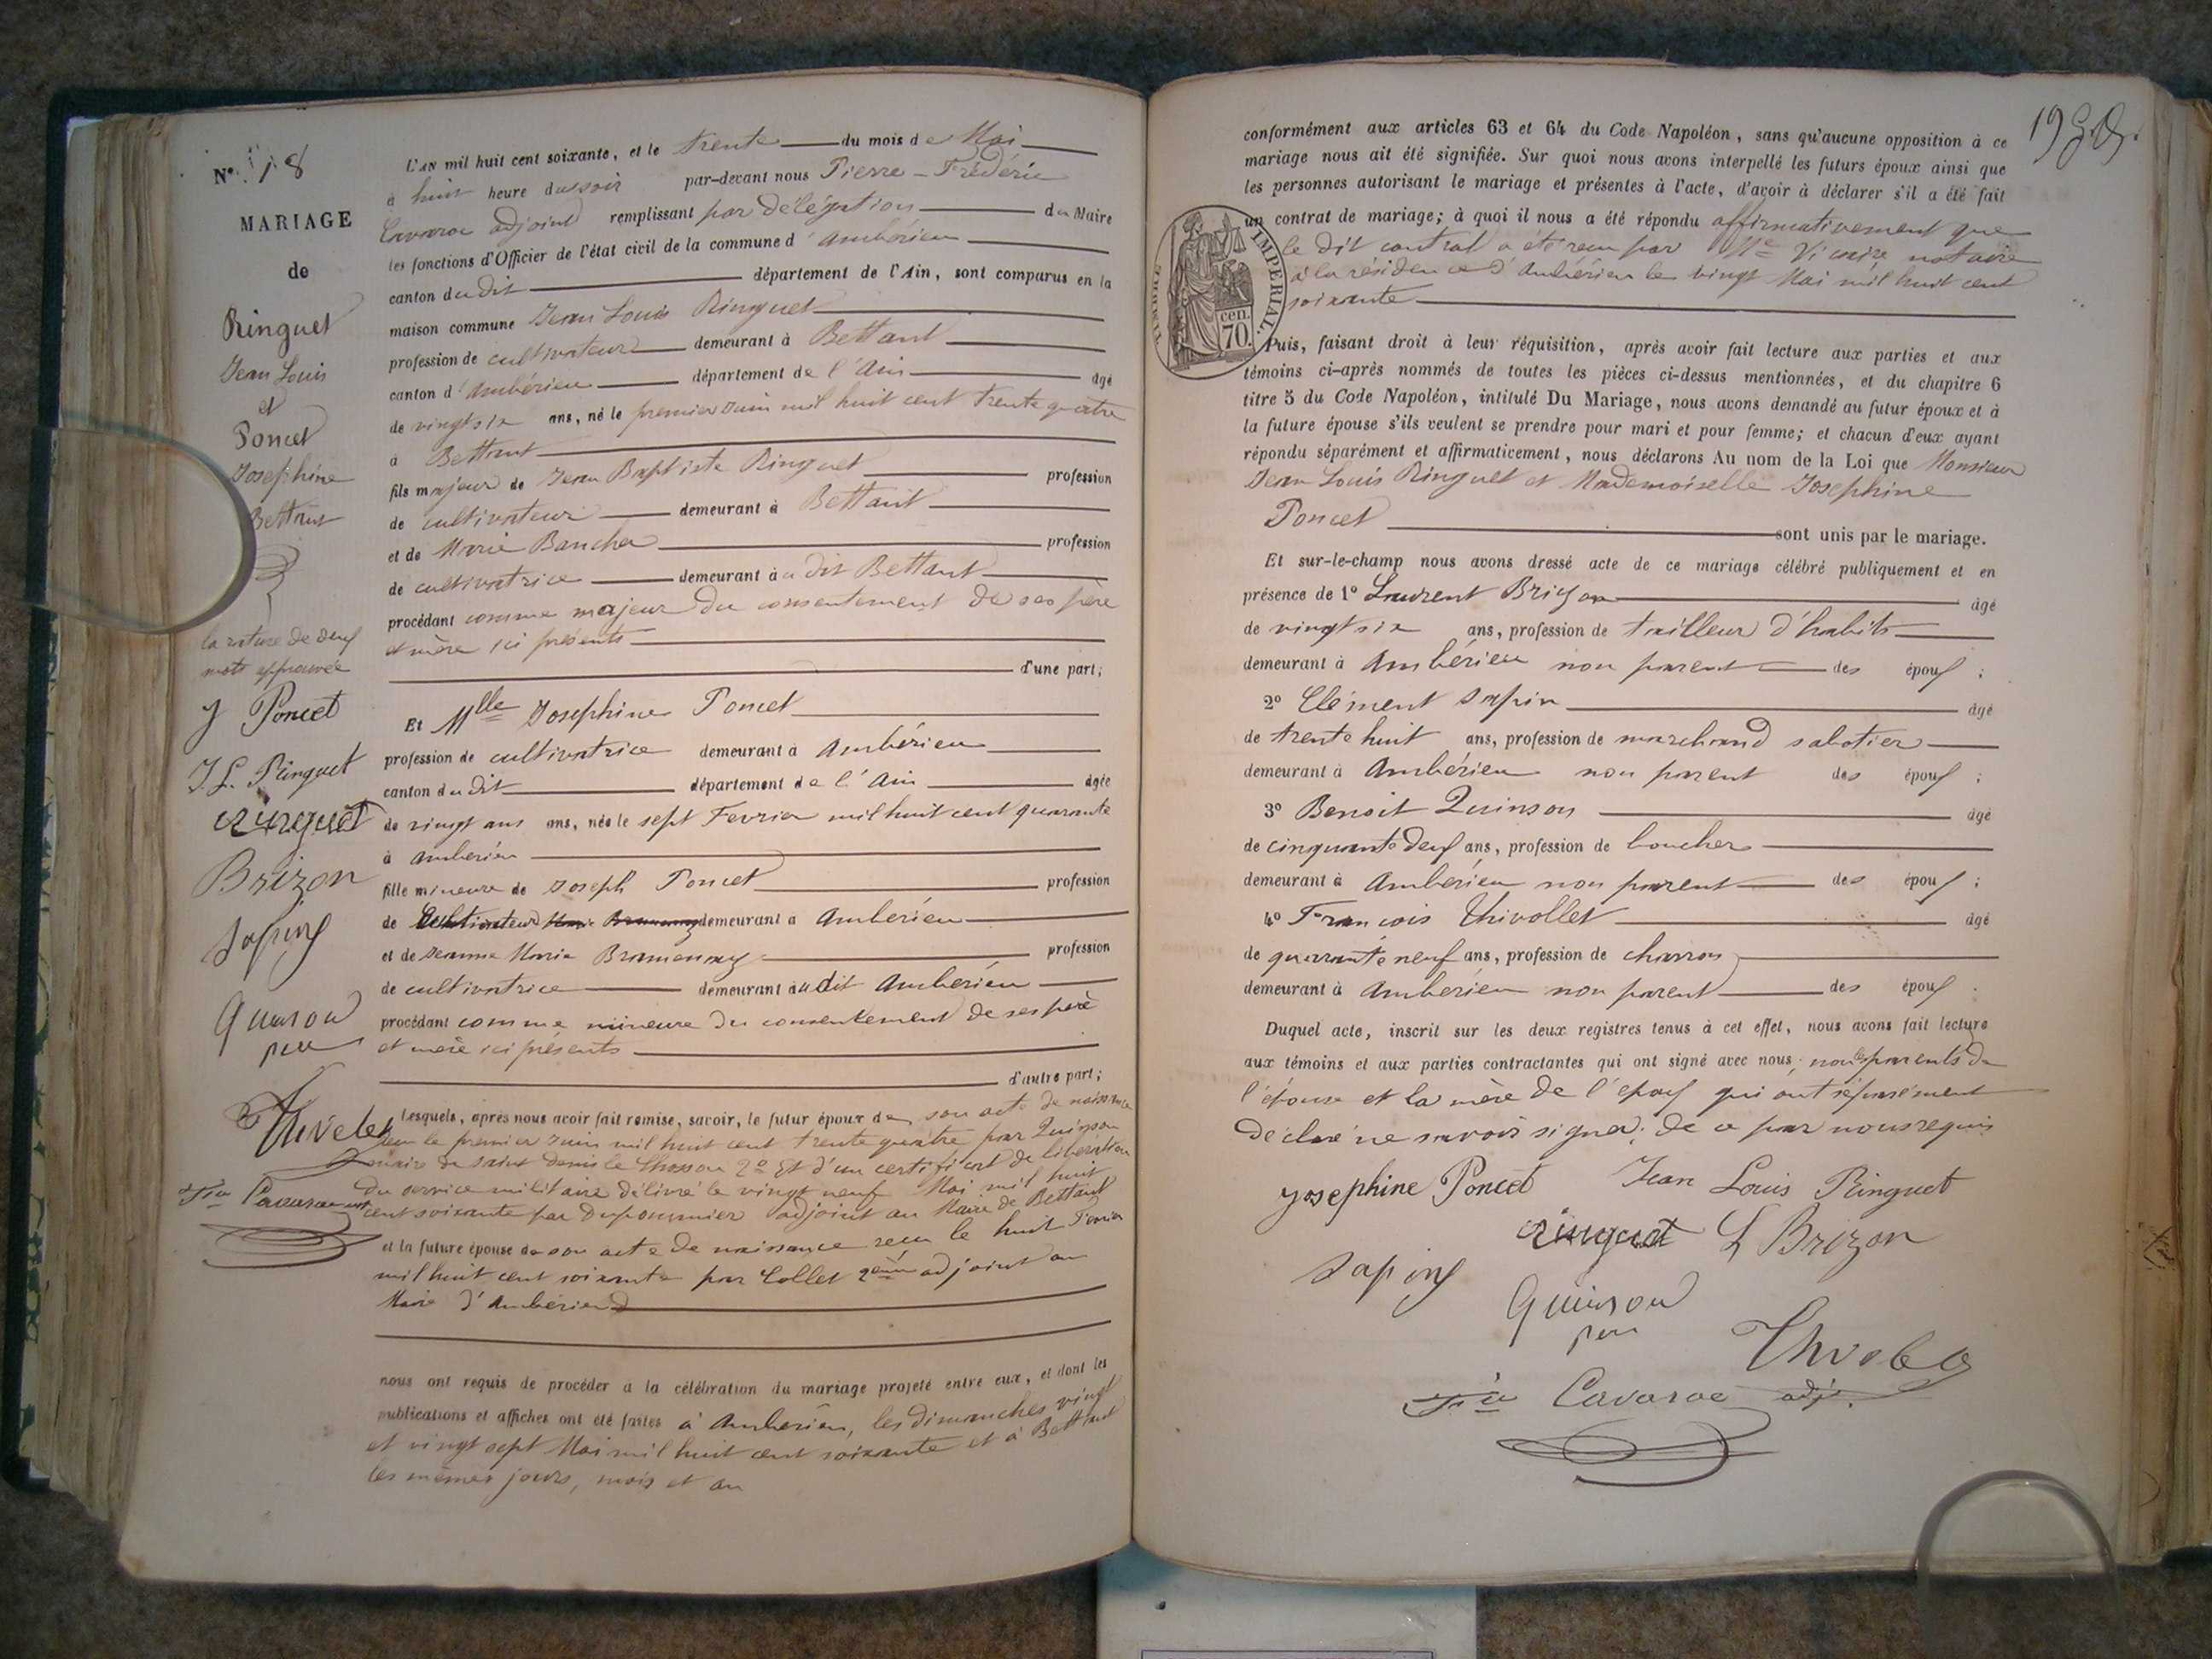 N° 18
MARIAGE
de
Ringuet
Jean Louis
et
Poncet
Josephine
Bettant
la rature de deux
mots approuvée
J Poncet
J. L. Ringuet
Ringuet
Brizon
Sapin
Quinson
père
Thivolet
Fic Cavaroc
L'AN mil huit cent soixante, et le trente du mois de Mai
à huit heure du soir par-devant nous Pierre-Frédéric
Cavaroc adjoint remplissant par délégation du Maire
les fonctions d'Officier de l'état civil de la commune d'Ambérieu
canton du dit département de l'Ain, sont comparus en la
maison commune Jean Louis Ringuet
profession de cultivateur demeurant à Bettant
canton d'Ambérieu département de l'Ain âgé
de vingt six ans, né le premier Juin mil huit cent trente quatre
à Bettant
fils majeur de Jean Baptiste Ringuet profession
de cultivateur demeurant à Bettant
et de Marie profession
de cultivatrice demeurant au dit Bettant
procédant comme majeur du consentement de ses père
et mère ici présents
d'une part;
Et Mlle Josephine Poncet
profession de cultivatrice demeurant à Ambérieu
canton du dit département de l'Ain âgée
de vingt ans ans, née le sept Fevrier mil huit cent quarante
à Ambérieu
fille mineure de Joseph Poncet profession
de Cultivateur demeurant à Ambérieu
et de Jeanne Marie profession
de cultivatrice demeurant audit Ambérieu
procédant comme mineure du consentement de ses père
et mère ici présents
d'autre part;
Lesquels, après nous avoir fait remise, savoir, le futur époux de son acte de naissance
reçu le premier Juin mil huit cent trente quatre par Quinson
maire de Saint Denis le Chosson 2° Et d'un certificat de libération
du service militaire délivré le vingt neuf Mai mil huit
cent soixante par Dupommier adjoint au Maire de Bettant
et la future épouse de son acte de naissance reçu le huit Fevrier
mil huit cent soixante par Collet 2ème adjoint au
Maire d'Ambérieu
nous ont requis de procéder à la célébration du mariage projeté entre eux, et dont les
publications et affiches ont été faites à Ambérieu, les dimanches vingt
et vingt sept Mai mil huit cent soixante et à Bettant
les mêmes jours, mois et an
19
conformément aux articles 63 et 64 du Code Napoléon, sans qu'aucune opposition à ce
mariage nous ait été signifiée. Sur quoi nous avons interpellé les futurs époux ainsi que
les personnes autorisant le mariage et présentes à l'acte, d'avoir à déclarer s'il a été fait
un contrat de mariage; à quoi il nous a été répondu affirmativement que
le dit contrat a été reçu par Me Vicaire notaire
à la résidence d'Ambérieu le vingt Mai mil huit cent
soixante
TIMBRE IMPERIAL.
cen.
70.
Puis, faisant droit à leur réquisition, après avoir fait lecture aux parties et aux
témoins ci-après nommés de toutes les pièces ci-dessus mentionnées, et du chapitre 6
titre 5 du Code Napoléon, intitulé Du Mariage, nous avons demandé au futur époux et à
la future épouse s'ils veulent se prendre pour mari et pour femme; et chacun d'eux ayant
répondu séparément et affirmaticement, nous déclarons Au nom de la Loi que Monsieur
Jean Louis Ringuet et Mademoiselle Josephine
Poncet sont unis par le mariage.
Et sur-le-champ nous avons dressé acte de ce mariage célébré publiquement et en
présence de 1° Laurent Brizon âgé
de vingt six ans, profession de tailleur d'habits
demeurant à Ambérieu non parent des époux;
2° Clément Sapin âgé
de trente huit ans, profession de marchand sabotier
demeurant à Ambérieu non parent des époux;
3° Benoit Quinson âgé
de cinquante deux ans, profession de boucher
demeurant à Ambérieu non parent des époux;
4° François Thivollet âgé
de quarante neuf ans, profession de charron
demeurant à Ambérieu non parent des époux.
Duquel acte, inscrit sur les deux registres tenus à cet effet, nous avons fait lecture
aux témoins et aux parties contractantes qui ont signé avec nous; non les parents de
l'épouse et la mère de l'époux qui ont séparément
déclaré ne savoir signer; de ce par nous requis
Josephine Poncet Jean Louis Ringuet
Ringuet L Brizon
Sapin
Quinson
père
Thivolet
Fic Cavaroc adj.